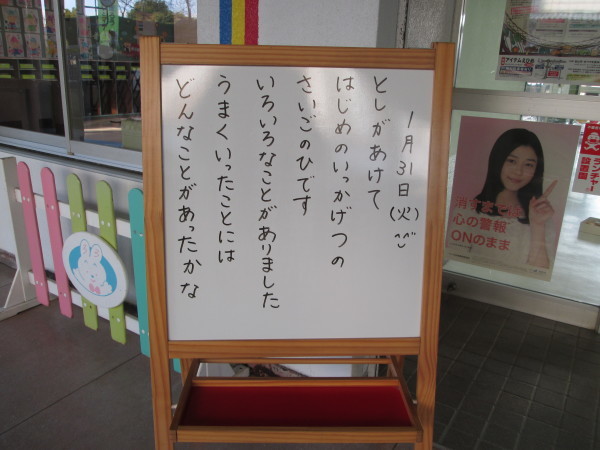 1月31日(火)
としがあけて
はじめのいっかげつの
さいごのひです
いろいろなことがありました
うまくいったことには
どんなことがあったかな
消すまでは
心の警報
ONのまま